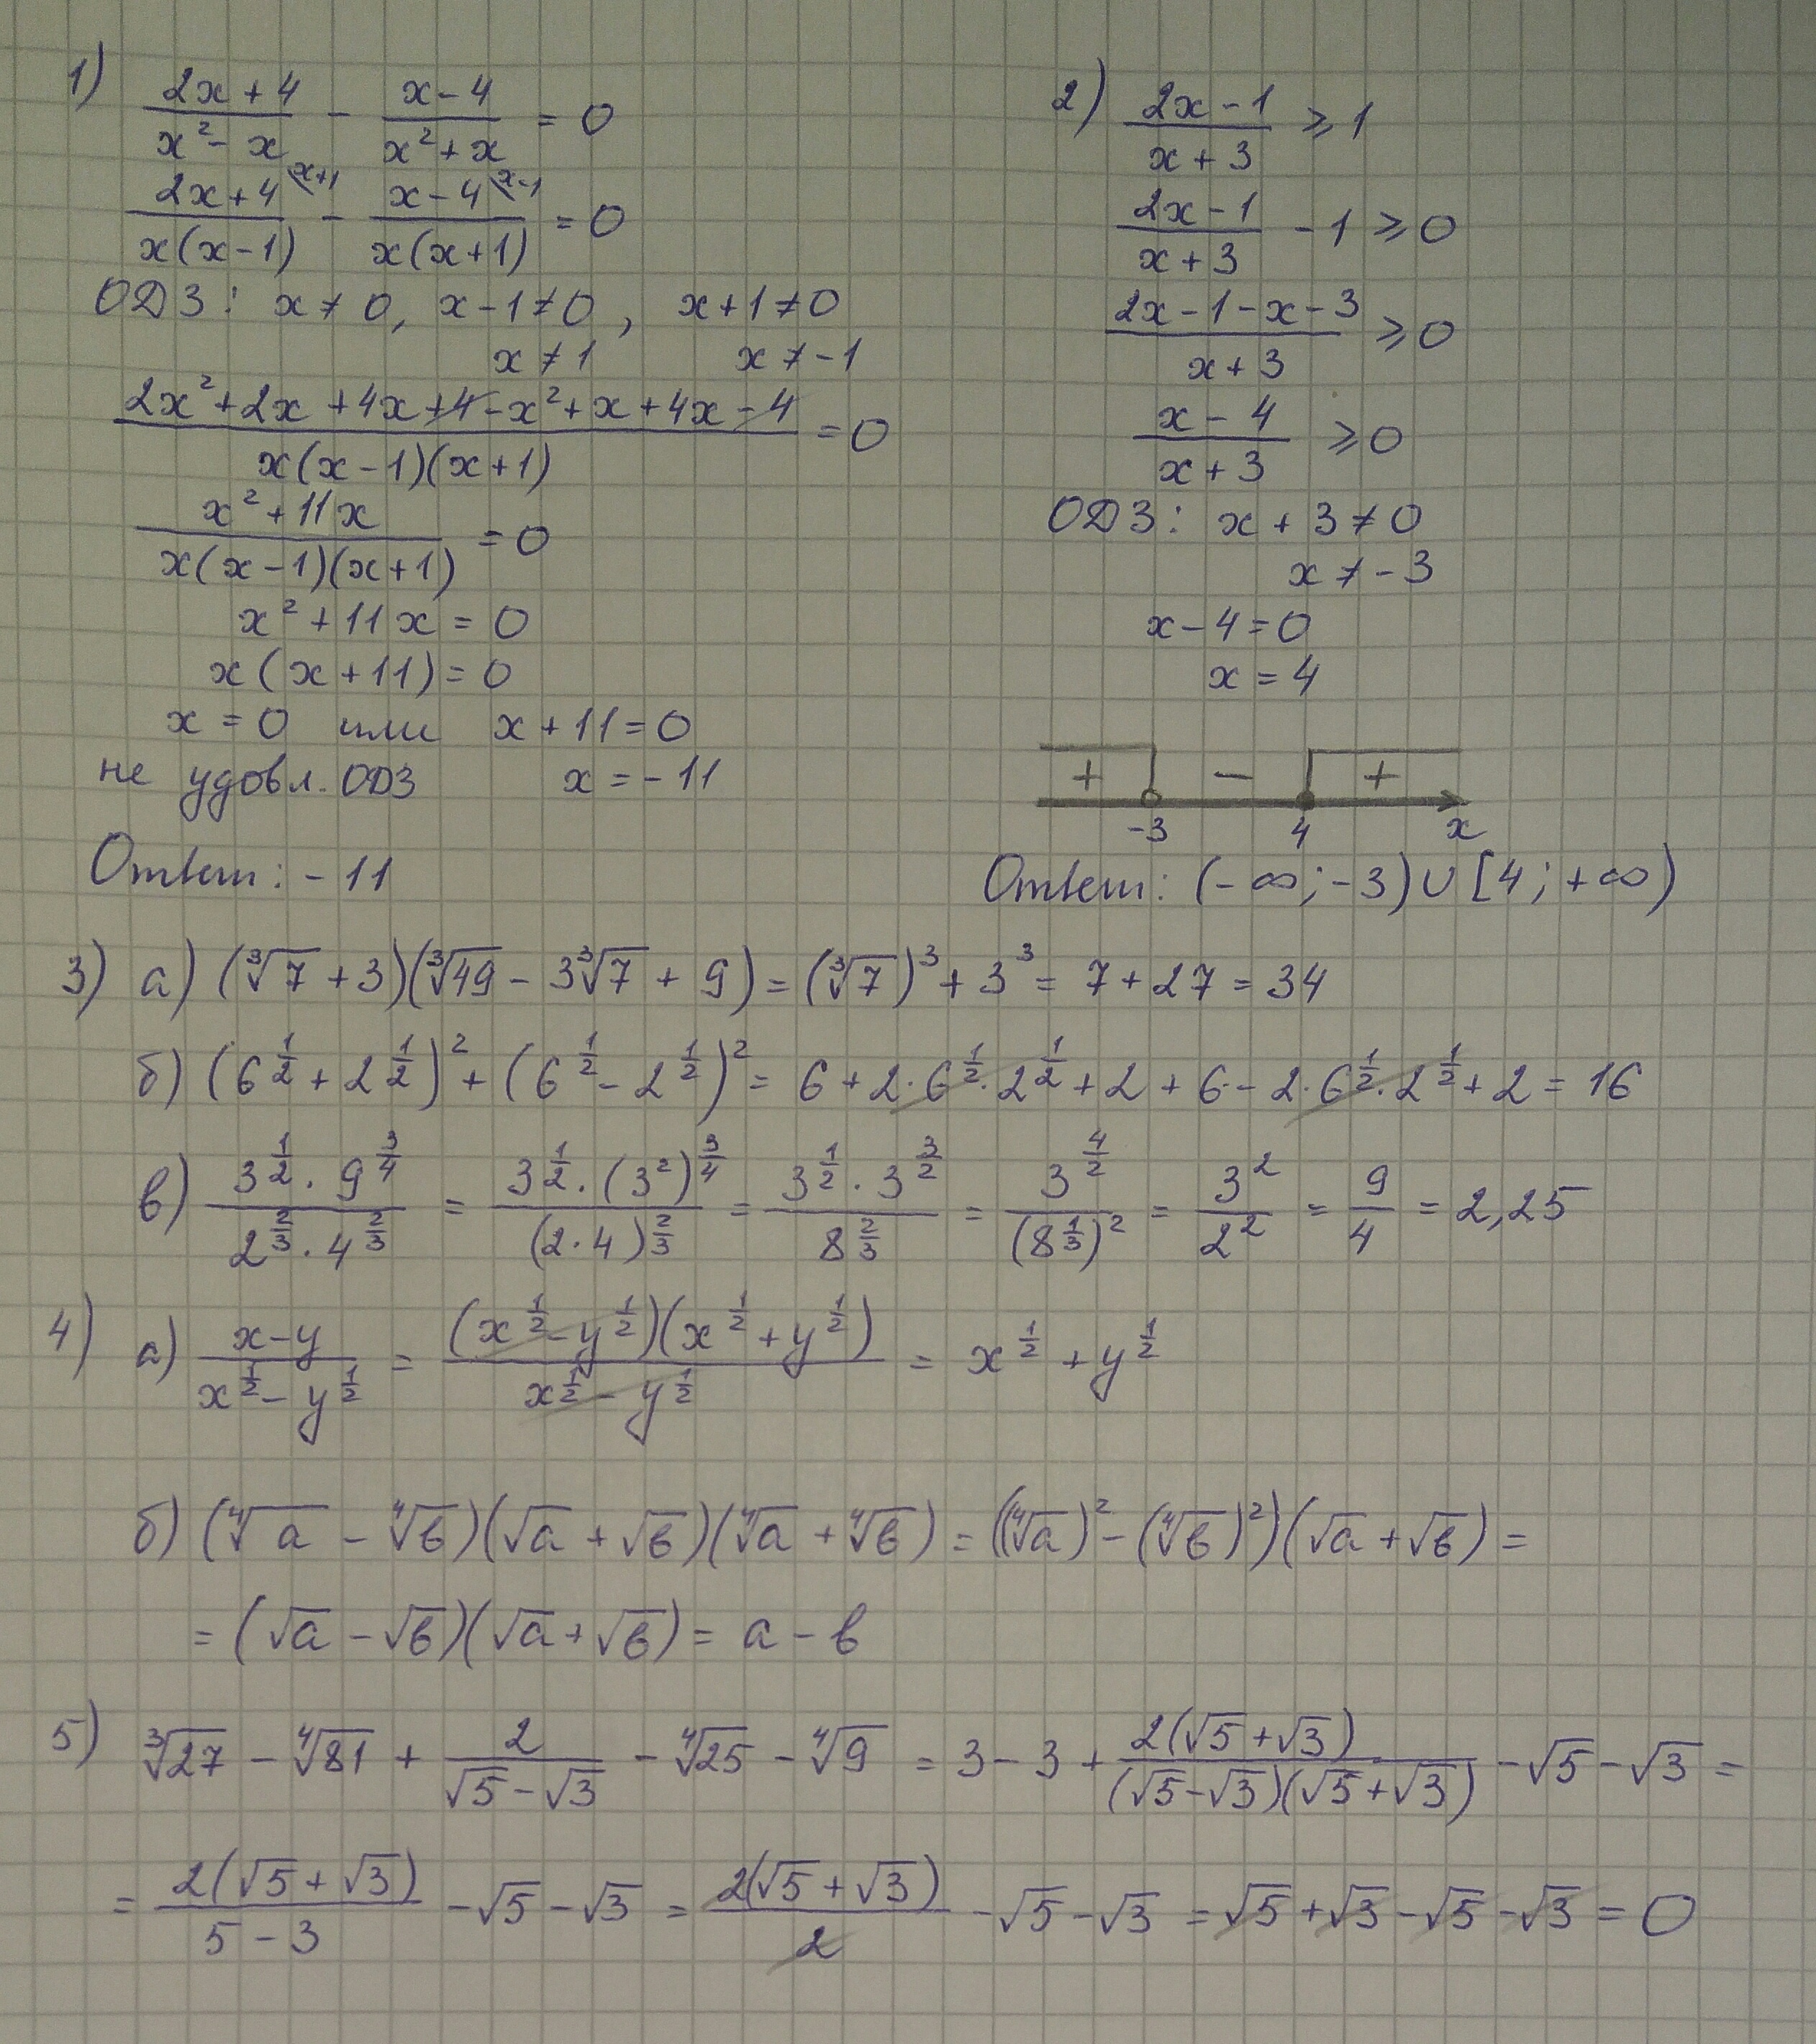 1) (2x+4)/(x²-x) - (x-4)/(x²+x) = 0
(2x+4)/(x(x-1)) \x+1 - (x-4)/(x(x+1)) \x-1 = 0
ОДЗ: x≠0, x-1≠0, x+1≠0
x≠1 x≠-1
(2x²+2x+4x+4-x²+x+4x-4)/(x(x-1)(x+1)) = 0
(x²+11x)/(x(x-1)(x+1)) = 0
x²+11x=0
x(x+11)=0
x=0 или x+11=0
не удовл. ОДЗ x=-11
Ответ: -11
2) (2x-1)/(x+3) ⩾ 1
(2x-1)/(x+3) - 1 ⩾ 0
(2x-1-x-3)/(x+3) ⩾ 0
(x-4)/(x+3) ⩾ 0
ОДЗ: x+3≠0
x≠-3
x-4=0
x=4
+ - +
-3 4 x
Ответ: (-∞;-3)∪[4;+∞)
3) а) (∛7+3)(∛49-3∛7+9)=(∛7)³+3³=7+27=34
б) (6^(1/2)+2^(1/2))²+(6^(1/2)-2^(1/2))²=6+2·6^(1/2)·2^(1/2)+2+6-2·6^(1/2)·2^(1/2)+2=16
в) (3^(1/2)·9^(3/4))/(2^(2/3)·4^(2/3)) = (3^(1/2)·(3²)^(3/4))/((2·4)^(2/3)) = (3^(1/2)·3^(3/2))/(8^(2/3)) = 3^(4/2)/(8^(1/3))² = 3²/2² = 9/4 = 2,25
4) а) (x-y)/(x^(1/2)-y^(1/2)) = ((x^(1/2)-y^(1/2))(x^(1/2)+y^(1/2)))/(x^(1/2)-y^(1/2)) = x^(1/2)+y^(1/2)
б) (∜a-∜в)(√a+√в)(∜a+∜в)=((∜a)²-(∜в)²)(√a+√в)=
=(√a-√в)(√a+√в)=a-в
5) ∛27-∜81+2/(√5-√3)-∜25-∜9=3-3+(2(√5+√3))/((√5-√3)(√5+√3))-√5-√3=
=(2(√5+√3))/(5-3)-√5-√3=(2(√5+√3))/2-√5-√3=√5+√3-√5-√3=0